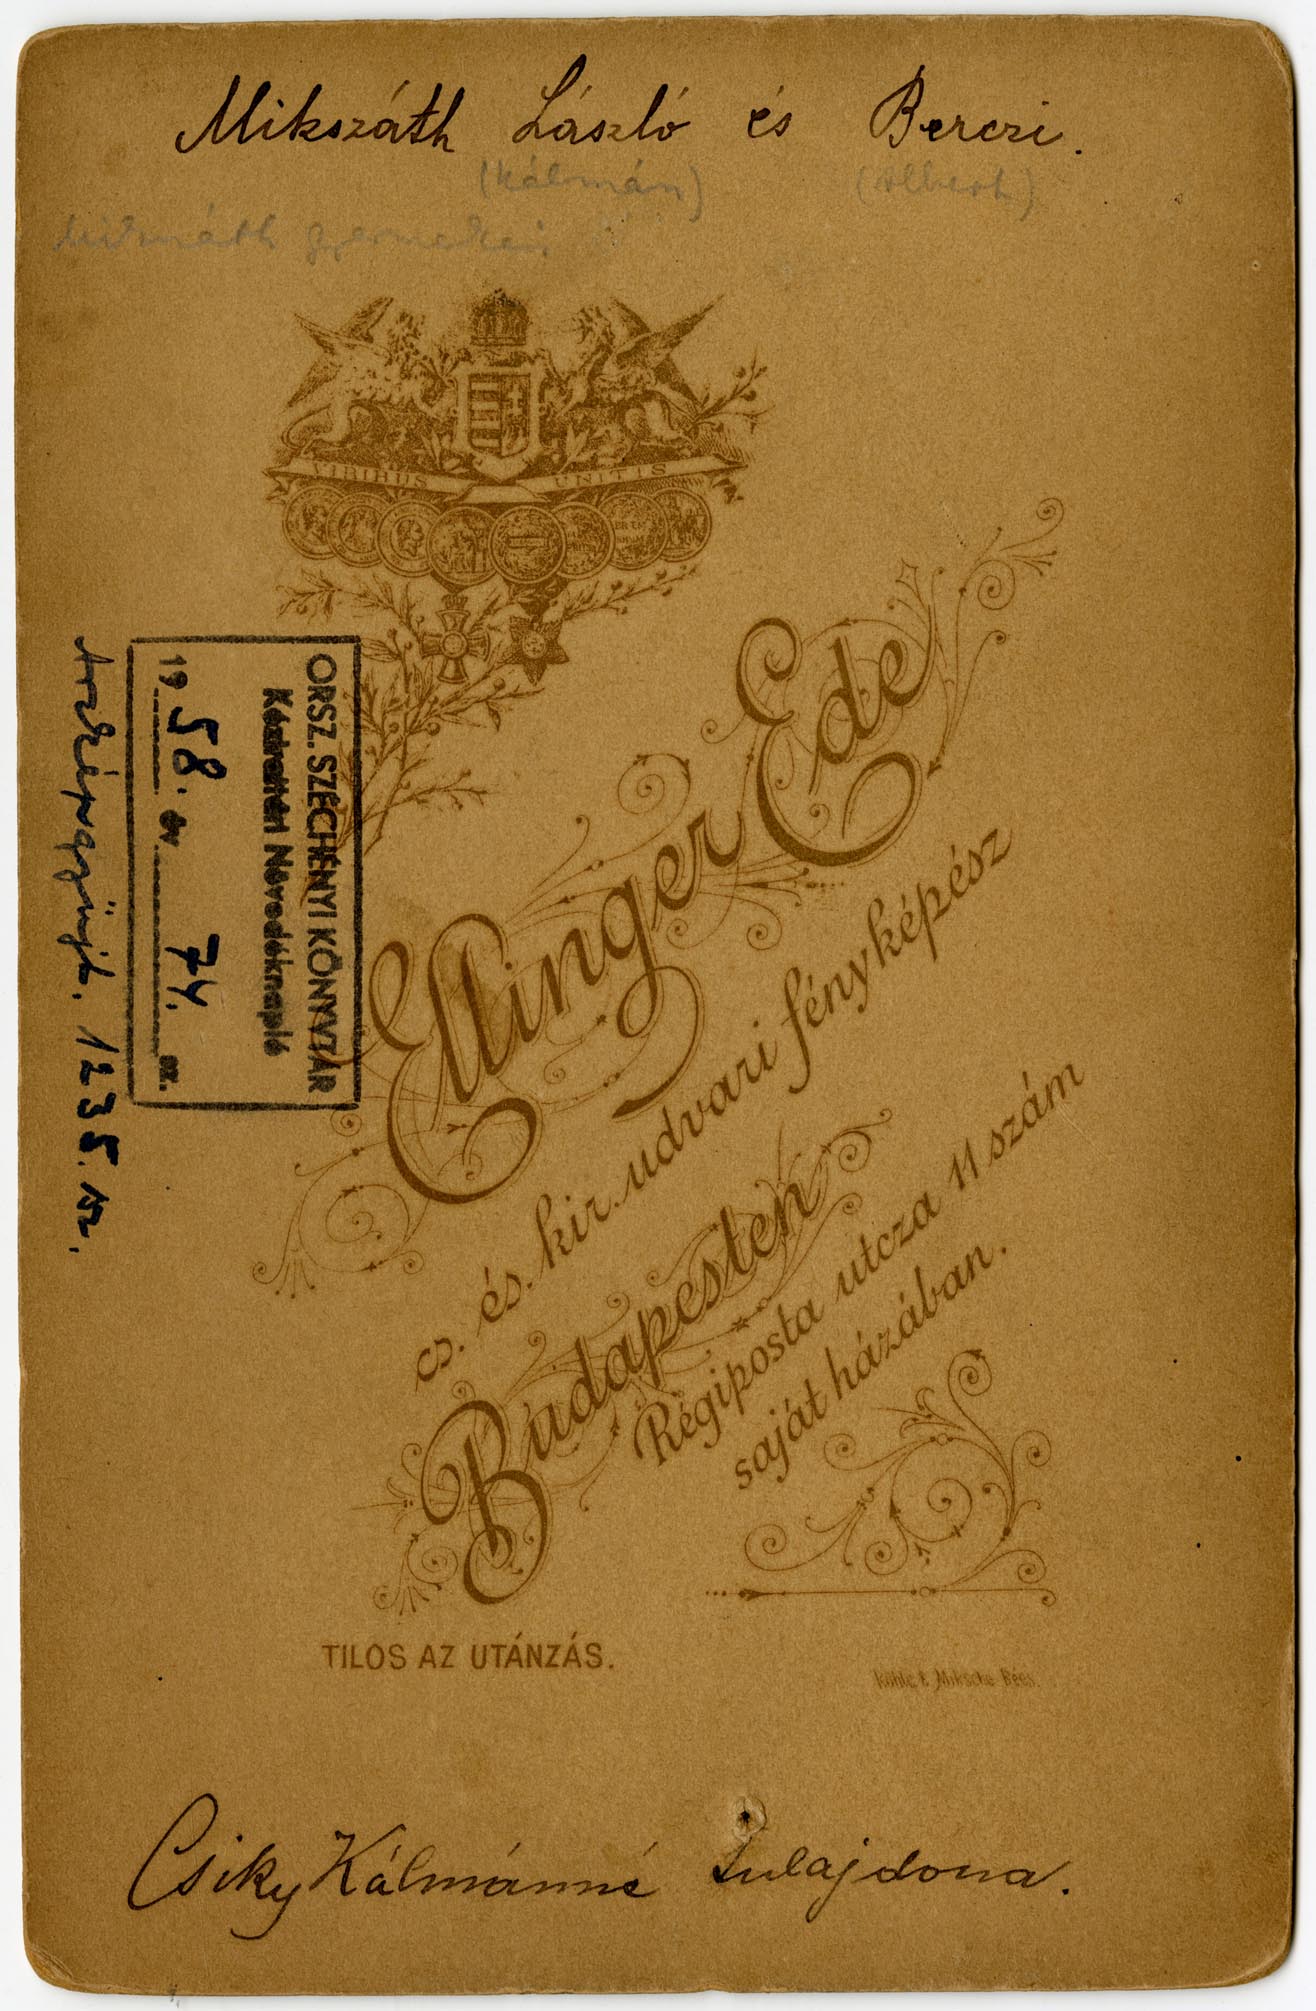 Mikszáth László és Berczi.
(Kálmán) (Albert)
Mikszáth gyermekei
VIRIBUS UNITIS
Ellinger Ede
cs. és. kir. udvari fényképész
Budapesten
Régiposta utcza 11 szám
saját házában.
ORSZ. SZÉCHÉNYI KÖNYVTÁR
Kézirattári Növedéknapló
1958. év 74. sz.
Arcképgyűjt. 1235. sz.
TILOS AZ UTÁNZÁS.
Miksche Bécs.
Csiky Kálmánné tulajdona.